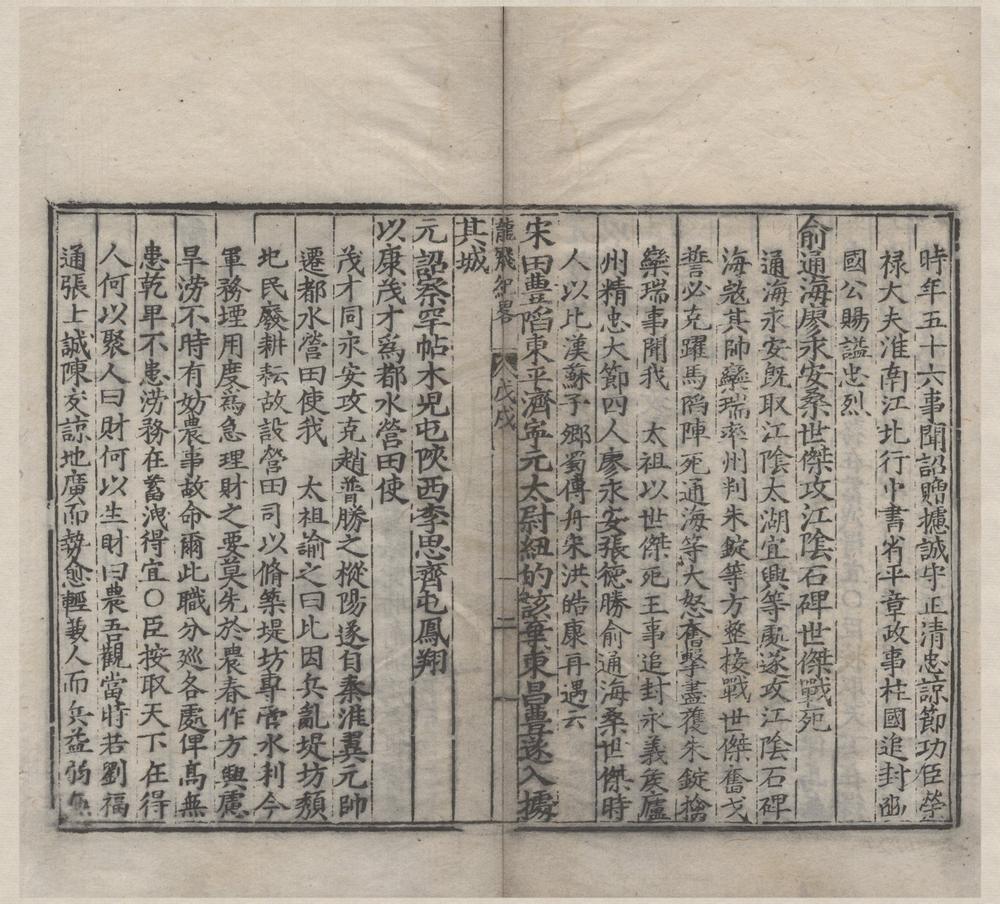 時年五十六事聞詔贈攄誠守正清忠諒節功臣榮
禄大夫淮南江北行中書省平章政事柱國追封
國公賜諡忠烈
俞通海廖永安桑世傑攻江陰石碑世傑戰死
通海永安既取江陰太湖宜興等處遂攻江陰石碑
海寇其帥欒瑞率州判朱錠等方整接戰世傑奮戈
誓必克躍馬陷陣死通海等大怒奮擊盡獲朱錠擒
欒瑞事聞我　太祖以世傑死王事追封永義侯廬
州精忠大節四人廖永安張德勝俞通海桑世傑時
人以比漢蘇子卿蜀傅舟宋洪皓康再遇云
宋田豊陷東平濟寧元太尉紐的該棄東昌豊遂入據
龍飛紀畧　戊戌　二十
其城
元詔察罕帖木児屯陜西李思齊屯鳳翔
以康茂才爲都水營田使
茂才同永安攻克趙普勝之樅陽遂自秦淮翼元帥
遷都水營田使我　太祖諭之曰比因兵亂堤坊頽
圯民廢耕耘故設營田司以脩築堤坊專雷水利今
軍務堙用度為急理財之要莫先於農春作方興慮
旱澇不時有妨農事故命爾此職分廵各處俾髙無
患乾卑不患澇務在蓄洩得宜○臣按取天下在得
人何以聚人曰財何以生財曰農吾觀當時若劉福
通張士誠陳友諒地廣而勢愈輕兼人而兵益弱無